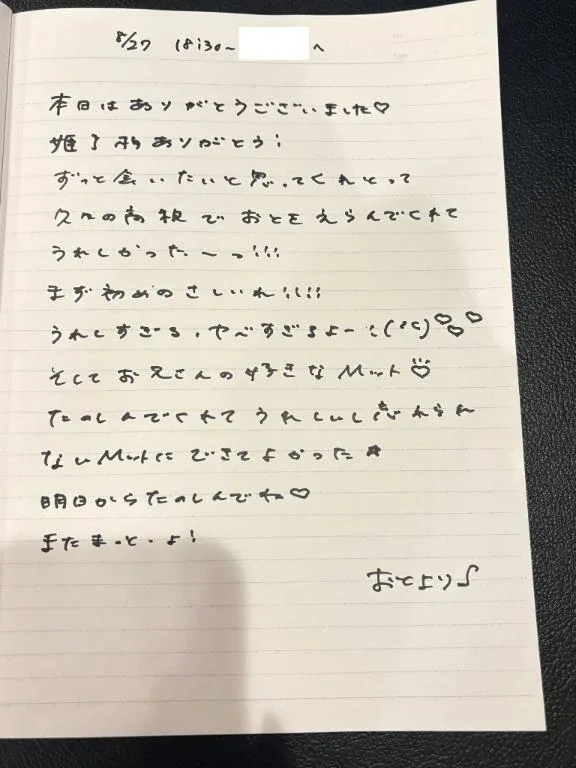 8/27 18:30～ へ
本日はありがとうございました♡
姫予約ありがとう！
ずっと会いたいと思ってくれとって
久々の高松でおとをえらんでくれて
うれしかった～っ!!!
まず初めのさしいれ!!!!
うれしすぎる、やべすぎるよー!
そしてお兄さんの好きなMット♡
たのしんでくれてうれしいし忘れられ
ないMットにできてよかった★
明日からたのしんでね♡
またまっと・よ!
おとより♪